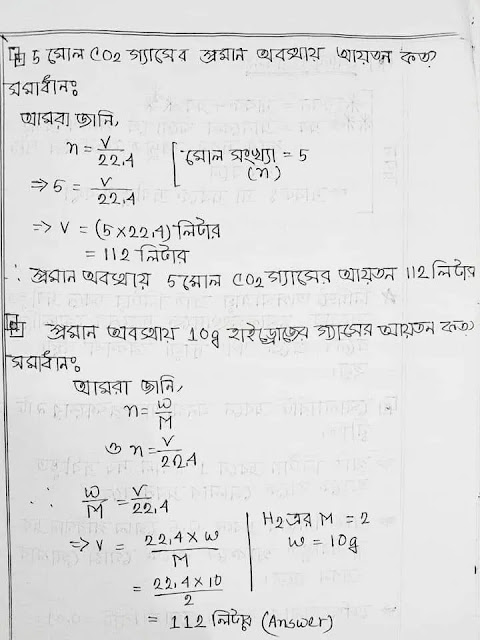 5 মোল CO2 গ্যাসের প্রমান অবস্থায় আয়তন কত?
সমাধানঃ
আমরা জানি,
n = V/22.4 [মোল সংখ্যা = 5 (n)
⇒ 5 = V/22.4
⇒ V = (5×22.4) লিটার
= 112 লিটার
∴ প্রমান অবস্থায় 5 মোল CO2 গ্যাসের আয়তন 112 লিটার
প্রমান অবস্থায় 10g হাইড্রোজের গ্যাসের আয়তন কত?
সমাধানঃ
আমরা জানি,
n = W/M
ও n = V/22.4
∴ W/M = V/22.4
⇒ V = 22.4 × W/M | H2 এর M = 2
W = 10g
= 22.4 × 10/2
= 112 লিটার (Answer)